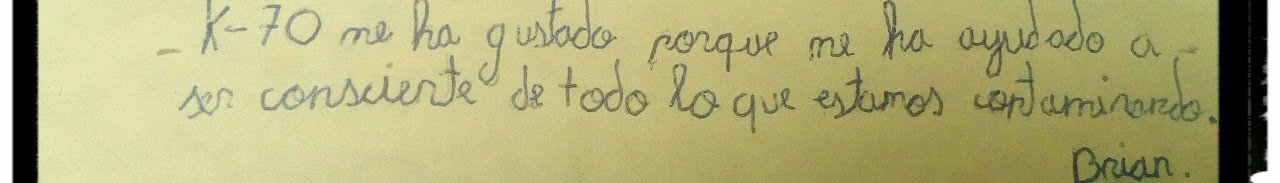 - K-70 me ha gustado porque me ha ayudado a -
ser consciente de todo lo que estamos contaminando.
Brian.